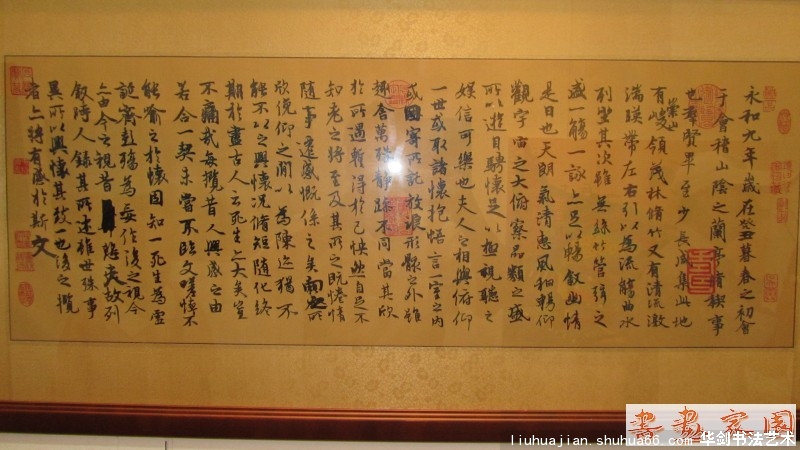 永和九年歲在癸丑暮春之初會
于會稽山陰之蘭亭脩稧事
也羣賢畢至少長咸集此地
有崇山峻領茂林脩竹又有清流激
湍暎帶左右引以為流觴曲水
列坐其次雖無絲竹管弦之
盛一觴一詠亦足以暢敘幽情
是日也天朗氣清惠風和暢仰
觀宇宙之大俯察品類之盛
所以遊目騁懷足以極視聽之
娛信可樂也夫人之相與俯仰
一世或取諸懷抱悟言一室之內
或因寄所託放浪形骸之外雖
趣舍萬殊靜躁不同當其欣
於所遇暫得於己怏然自足不
知老之將至及其所之既惓情
隨事遷感慨係之矣向之所
欣俛仰之閒以為陳迹猶不
能不以之興懷況脩短隨化終
期於盡古人云死生亦大矣豈
不痛哉每攬昔人興感之由
若合一契未嘗不臨文嗟悼不
能喻之於懷固知一死生為虛
誕齊彭殤為妄作後之視今
亦由今之視昔悲夫故列
敘時人錄其所述雖世殊事
異所以興懷其致一也後之攬
者亦將有感於斯文
書畫家園
liuhuajian.shuhua66.com 华剑书法艺术